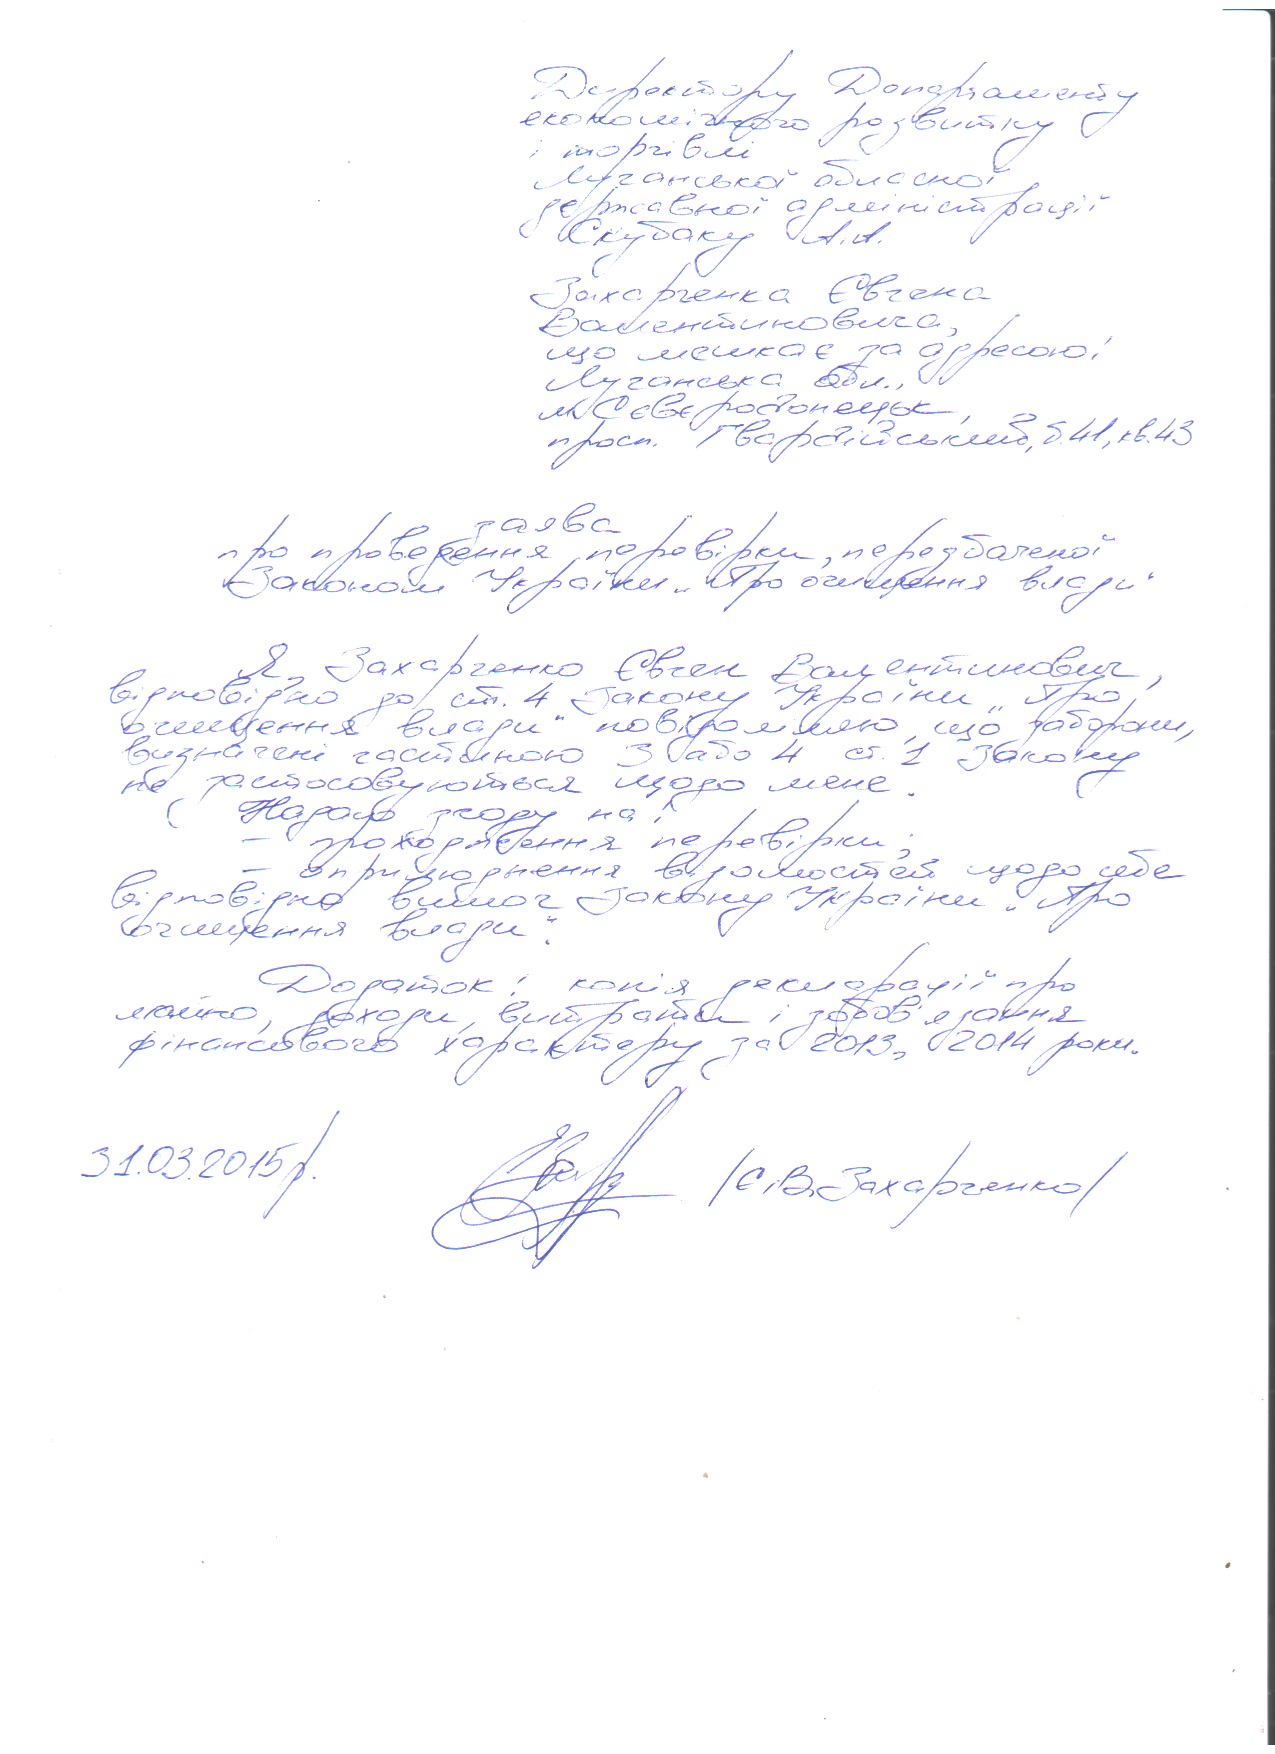 Директору Департаменту
економічного розвитку
і торгівлі
Луганської обласної
державної адміністрації
Скубаку А.А.
Захарченка Євгена
Валентиновича,
що мешкає за адресою:
Луганська обл.,
м. Сєвєродонецьк,
просп. Гвардійський, б.41, кв.43
заява
про проведення перевірки, передбаченої
Законом України „Про очищення влади“
Я, Захарченко Євген Валентинович,
відповідно до ст. 4 Закону України „Про
очищення влади“ повідомляю, що заборони,
визначені частиною 3 або 4 ст. 1 Закону
не застосовуються щодо мене.
Надаю згоду на:
– проходження перевірки;
– оприлюднення відомостей щодо себе
відповідно вимог Закону України „Про
очищення влади“.
Додаток: копія декларації про
майно, доходи, витрати і зобов'язання
фінансового характеру за 2013, 2014 роки.
31.03.2015р. /Є.В.Захарченко/